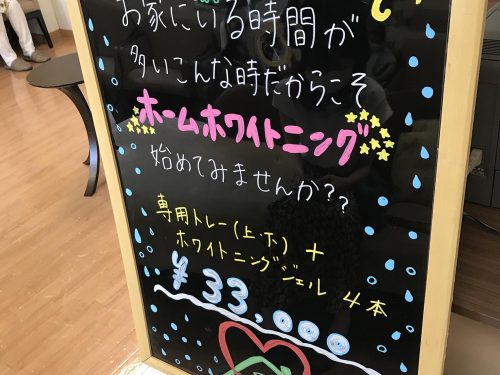 お家にいる時間が
多いこんな時だからこそ
ホームホワイトニング
始めてみませんか??
専用トレー(上・下) +
ホワイトニングジェル 4本
¥33,000